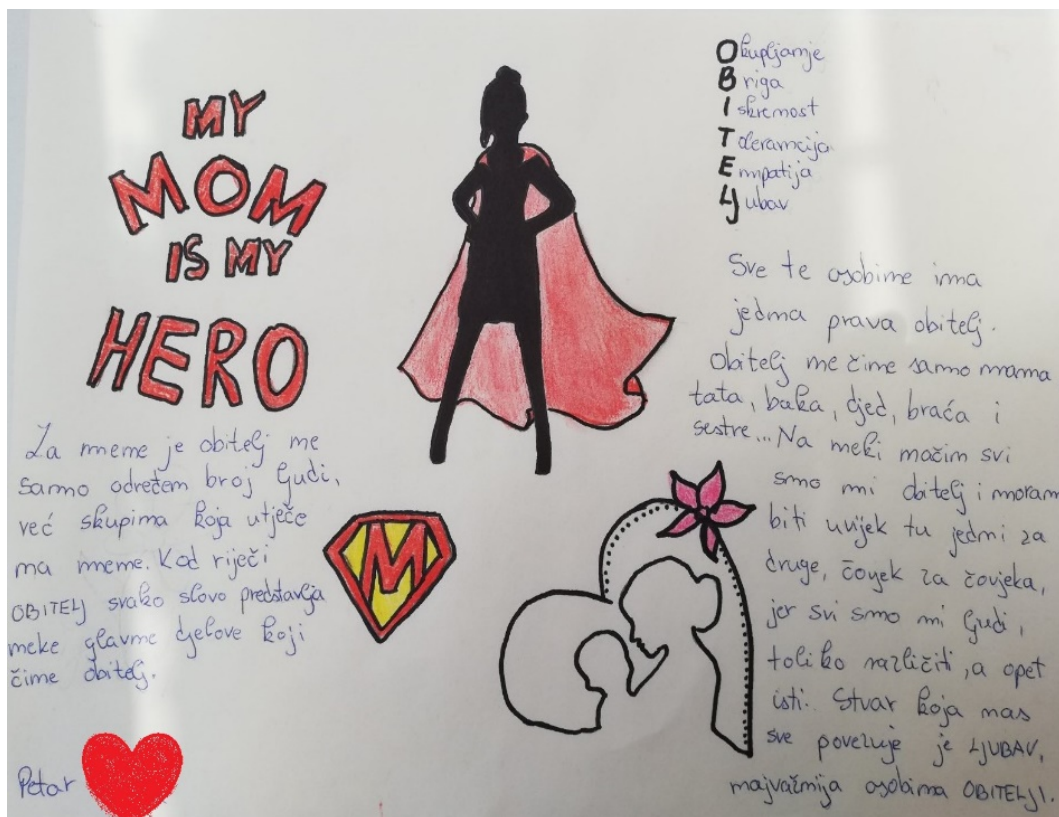 MY
MOM
IS MY
HERO
Za mene je obitelj ne
samo određen broj ljudi,
već skupina koja utječe
na mene. Kod riječi
OBITELJ svako slovo predstavlja
neke glavne djelove koji
čine obitelj.
Petar
M
Okupljanje
Briga
Iskrenost
Tolerancija
Empatija
Ljubav
Sve te osobine ima
jedna prava obitelj.
Obitelj ne čine samo mama
tata, baka, djed, braća i
sestre... Na neki način svi
smo mi obitelj i moramo
biti uvijek tu jedni za
druge, čovjek za čovjeka,
jer svi smo mi ljudi,
toliko različiti, a opet
isti. Stvar koja nas
sve povezuje je LJUBAV,
najvažnija osobina OBITELJI.